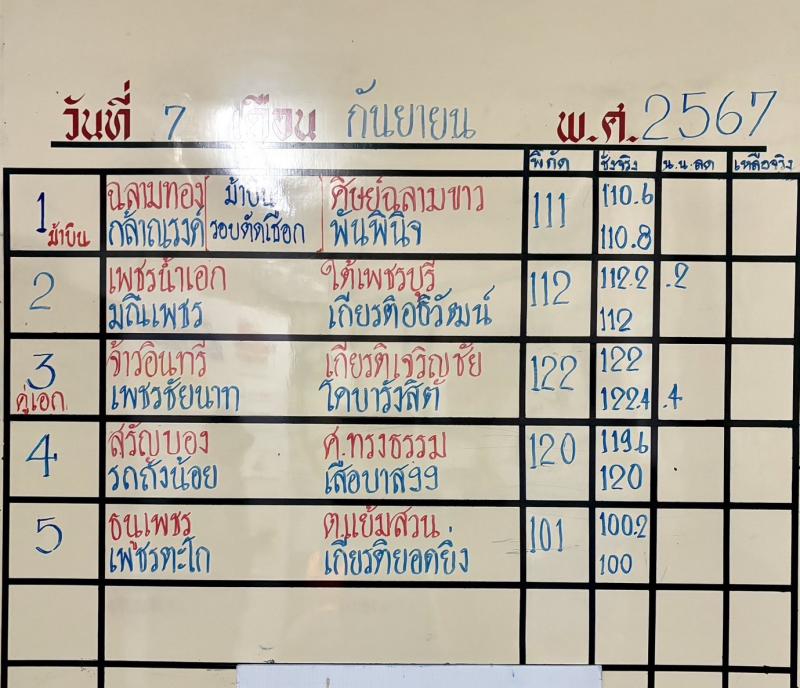 วันที่ 7 เดือน กันยายน พ.ศ. 2567
พิกัด ชั่งจริง น.น.ลด เหลือจริง
1 ฉลามทอง ม้าบิน ศิษย์ฉลามขาว 111 110.6
ม้าบิน กล้าณรงค์ รอบตัดเชือก พันพินิจ 110.8
2 เพชรน้ำเอก ใต้เพชรบุรี 112 112.2 .2
มณีเพชร เกียรติอธิวัฒน์ 112
3 จ้าวอินทรี เกียรติเจริญชัย 122 122
คู่เอก เพชรชัยนาท โคบารังสิต 122.4 .4
4 สรัญบอง ศ.ทรงธรรม 120 119.6
รถถังน้อย เสือบาส99 120
5 ธนูเพชร ต.แย้มสวน 101 100.2
เพชรตะโก เกียรติยอดยิ่ง 100